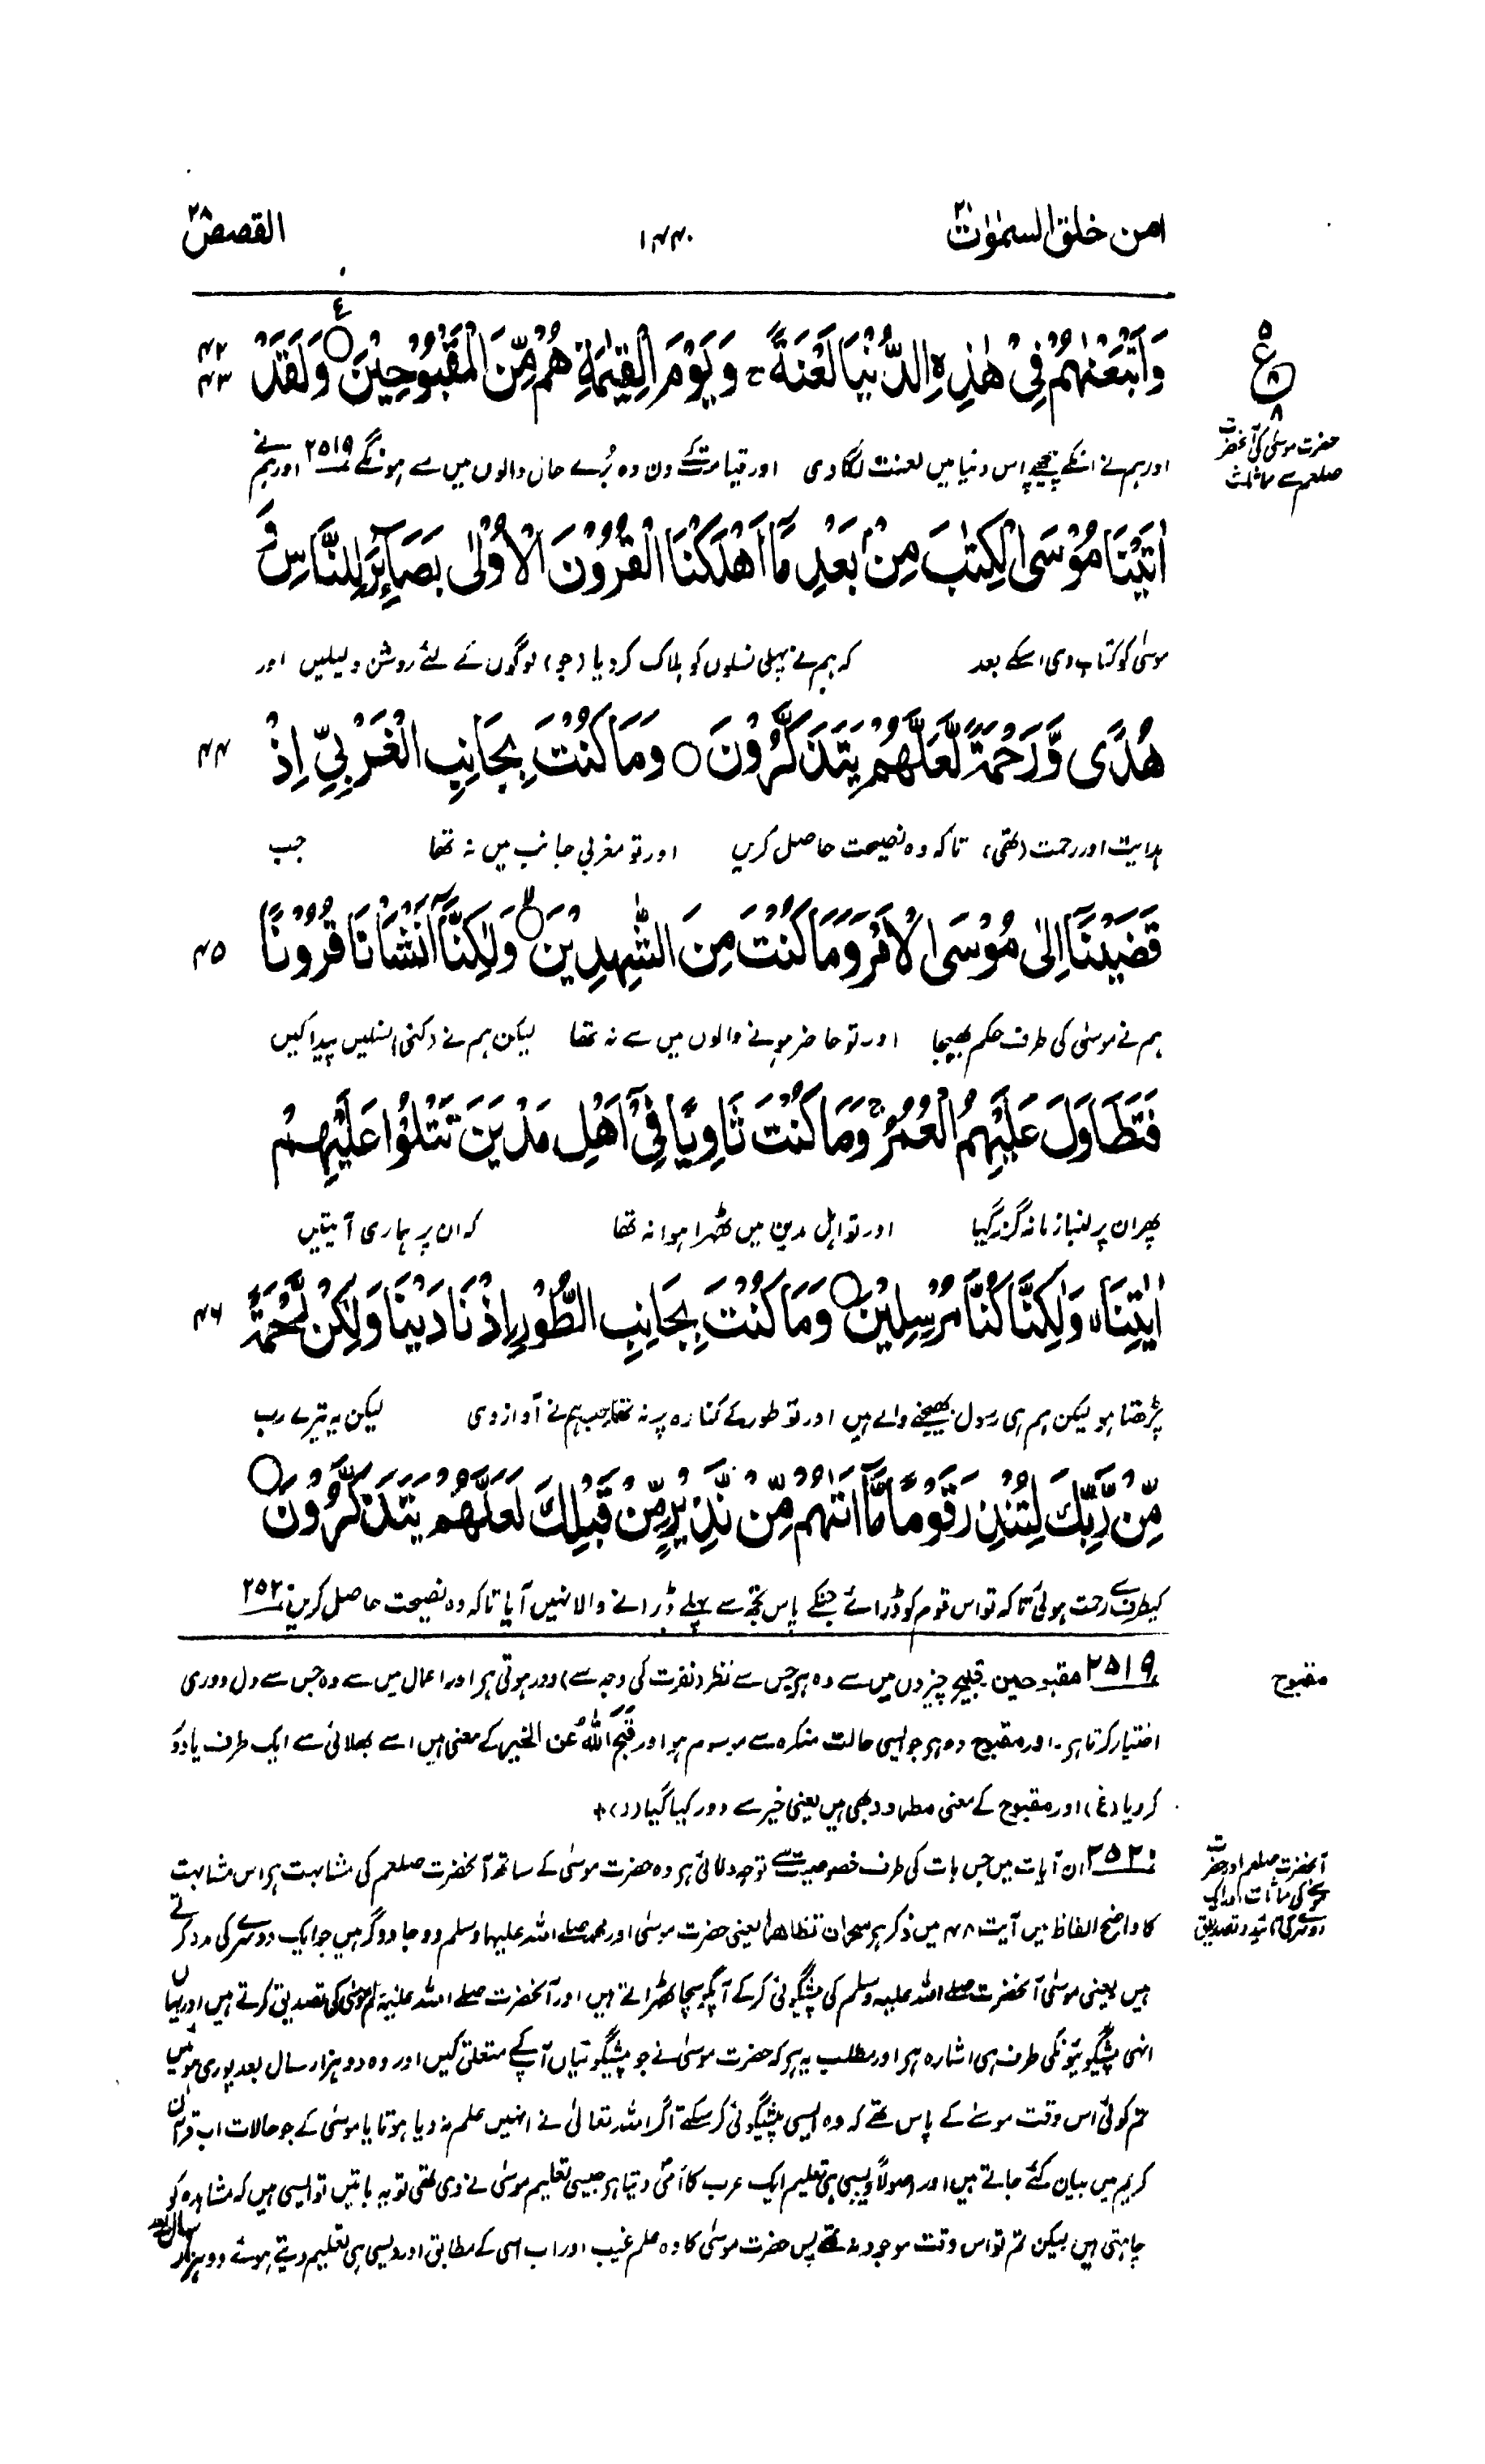 امن خلق السمٰوٰت ۲۰
۱۴۴۰
القصص ۲۸
وَاَتْبَعْنٰهُمْ فِىْ هٰذِهِ الدُّنْيَا لَعْنَةً ۚ وَيَوْمَ الْقِيٰمَةِ هُمْ مِّنَ الْمَقْبُوْحِيْنَ ○ وَلَقَدْ
۴۲
۴۳
ع
۵
۸
۸
حضرت موسیٰ کی آنحضرت
صلعم سے مماثلت
اور ہم نے انکے پیچھے اس دنیا میں لعنت لگا دی اور قیامت کے دن وہ بُرے حال والوں میں سے ہونگے ۲۵۱۹ اور ہم نے
اٰتَيْنَا مُوْسَى الْكِتٰبَ مِنْۢ بَعْدِ مَآ اَهْلَكْنَا الْقُرُوْنَ الْاُوْلٰى بَصَآئِرَ لِلنَّاسِ وَ
موسیٰ کو کتاب دی اسکے بعد کہ ہم نے پہلی نسلوں کو ہلاک کر دیا (جو) لوگوں کے لئے روشن دلیلیں اور
هُدًى وَّرَحْمَةً لَّعَلَّهُمْ يَتَذَكَّرُوْنَ ○ وَمَا كُنْتَ بِجَانِبِ الْغَرْبِيِّ اِذْ
۴۴
ہدایت اور رحمت (تھی) تاکہ وہ نصیحت حاصل کریں اور تو مغربی جانب میں نہ تھا جب
قَضَيْنَآ اِلٰى مُوْسَى الْاَمْرَ وَمَا كُنْتَ مِنَ الشّٰهِدِيْنَ ○ۙ وَلٰكِنَّآ اَنْشَاْنَا قُرُوْنًا
۴۵
ہم نے موسیٰ کی طرف حکم بھیجا اور تو حاضر ہونے والوں میں سے نہ تھا لیکن ہم نے (کئی) نسلیں پیدا کیں
فَتَطَاوَلَ عَلَيْهِمُ الْعُمُرُ ۚ وَمَا كُنْتَ ثَاوِيًا فِىْٓ اَهْلِ مَدْيَنَ تَتْلُوْا عَلَيْهِمْ
پھر ان پر لنبا زمانہ گزر گیا اور تو اہل مدین میں ٹھہرا ہوا نہ تھا کہ ان پر ہماری آیتیں
اٰيٰتِنَا ۙ وَلٰكِنَّا كُنَّا مُرْسِلِيْنَ ○ وَمَا كُنْتَ بِجَانِبِ الطُّوْرِ اِذْ نَادَيْنَا وَلٰكِنْ رَّحْمَةً
۴۶
پڑھتا ہو لیکن ہم ہی رسول بھیجنے والے ہیں اور تو طور کے کنارہ پر نہ تھا جب ہم نے آواز دی لیکن یہ تیرے رب
مِّنْ رَّبِّكَ لِتُنْذِرَ قَوْمًا مَّآ اَتٰهُمْ مِّنْ نَّذِيْرٍ مِّنْ قَبْلِكَ لَعَلَّهُمْ يَتَذَكَّرُوْنَ ○
کیطرف سے رحمت ہوئی تاکہ تو اس قوم کو ڈرائے جنکے پاس تجھ سے پہلے ڈرانے والا نہیں آیا تاکہ وہ نصیحت حاصل کریں ۲۵۲۰
مقبوح
۲۵۱۹ مقبوحین۔ قبیح چیزوں میں سے وہ ہر جس سے نظر (نفرت کی وجہ سے) دور ہوتی ہر اور اعمال میں سے وہ جس سے دل دوری
اختیار کرتا ہر۔ اور مقبوح وہ ہر جو ایسی حالت منکرہ سے موسوم ہو اور قَبَحَ اللّٰهُ عن الخیر کے معنی ہیں اسے بھلائی سے ایک طرف یا دور
کر دیا (غ) اور مقبوح کے معنی مطرود بھی ہیں یعنی خیر سے دور کیا گیا (ر)+
آنحضرت صلعم اور حضرت
کی مماثلت اور ایک
دوسرے کی تائید و تصدیق
۲۵۲۰ ان آیات میں جس بات کی طرف خصوصیت سے توجہ دلائی ہر وہ حضرت موسیٰ کے ساتھ آنحضرت صلعم کی مشابہت ہر اس مشابہت
کا واضح الفاظ میں آیت ۴۸ میں ذکر ہر سحران تظاهرا یعنی حضرت موسیٰ اور محمد صلے اللہ علیہما وسلم دو جادوگر ہیں جو ایک دوسرے کی مدد کرتے
ہیں یعنی موسیٰ آنحضرت صلے اللہ علیہ وسلم کی پیشگوئی کر کے آپکو سچا ٹھہراتے ہیں اور آنحضرت صلے اللہ علیہ وسلم موسیٰ کی تصدیق کرتے ہیں اور یہاں
انہی پیشگوئیونکی طرف ہی اشارہ ہر اور مطلب یہ ہر کہ حضرت موسیٰ نے جو پیشگوئیاں آپکے متعلق کیں اور وہ دو ہزار سال بعد پوری ہوئیں
تم کوئی اس وقت موسےٰ کے پاس تھے کہ وہ ایسی پیشگوئی کر سکتے اگر اللہ تعالیٰ نے انہیں علم نہ دیا ہوتا یا موسیٰ کے جو حالات اب قرآن
کریم میں بیان کئے جاتے ہیں اور اصولاً ویسی ہی تعلیم ایک عرب کا اُمّی دیتا ہر جیسی تعلیم موسیٰ نے دی تھی تو یہ باتیں تو ایسی ہیں کہ مشاہدہ کو
چاہتی ہیں لیکن تم تو اس وقت موجود نہ تھے پس حضرت موسیٰ کا وہ علم غیب اور اب اسی کے مطابق اور ویسی ہی تعلیم دیتے ہوئے دو ہزار سال بعد